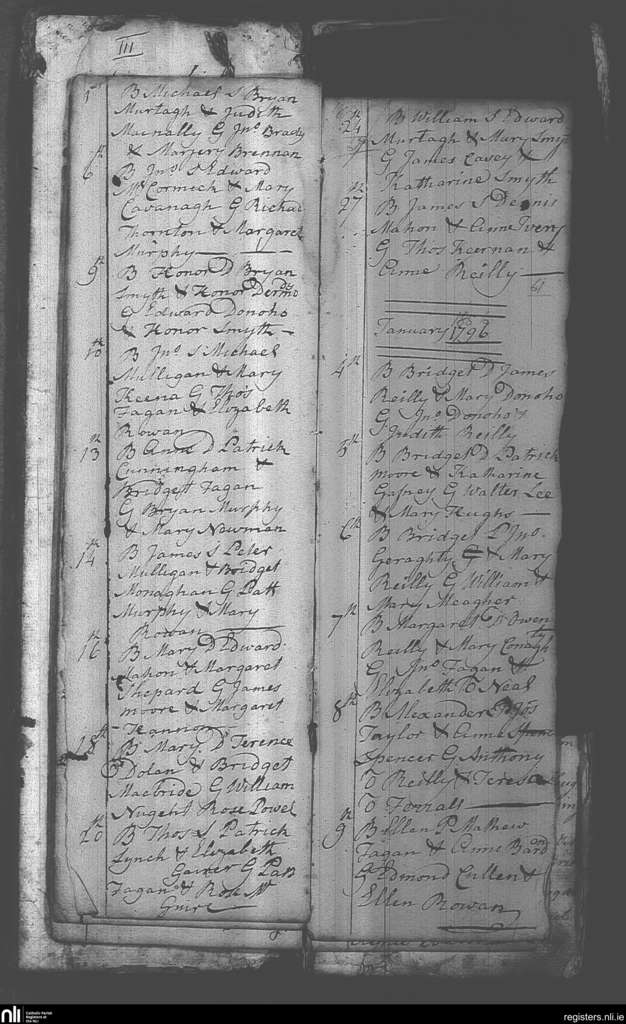 III
5th B Michael S Bryan
Murtagh & Judith
Macnally G Jno Brady
& Marjery Brennan
6th B Jno S Edward
McCormick & Mary
Cavanagh G Richar
Thornton & Margaret
Murphy
9th B Honor D Bryan
Smyth & Honor Dermo
G Edward Donoho
& Honor Smyth
10th B Jno S Michael
Mulligan & Mary
Keena G Thos
Fagan & Elizabeth
Rowan
13th B Anne D Patrick
Cunningham &
Bridgett Fagan
G Bryan Murphy
& Mary Newman
14th B James S Peter
Mulligan & Bridget
Monaghan G Patt
Murphy & Mary
Rowan
16th B Mary D Edward
Mahon & Margaret
Shepard G James
Moore & Margaret
Hannon
18th B Mary D Terence
Dolan & Bridget
Macbride G William
Nugent Rose Powel
20th B Thos S Patrick
Lynch & Elizabeth
Gainer G Patt
Fagan & Rose Mc
Guire
24th B William S Edward
Murtagh & Mary Smyt
G James Casey &
Katharine Smyth
27th B James S Dennis
Mahon & Anne Ivery
G Thos Keernan &
Anne Reilly
61
January 1796
4th B Bridget D James
Reilly & Mary Donoho
G Jno Donoho &
Judith Reilly
5th B Bridget D Patrick
Moore & Katharine
Gafney G Walter Lee
& Mary Hughs
6th B Bridget D Jno
Geraghty & Mary
Reilly G William &
Mary Meagher
7th B Margaret D Owen
Reilly & Mary Conaghty
G Jno Fagan &
Elizabeth O Neal
8th B Alexander S Thos
Taylor & Anne
Spencer G Anthony
O Reilly & Teresa
O Ferrall
9th B Ellen D Mathew
Fagan & Anne Bardon
G Edmond Cullen &
Ellen Rowan
nli
Catholic Parish
Registers at
the NLI
registers.nli.ie